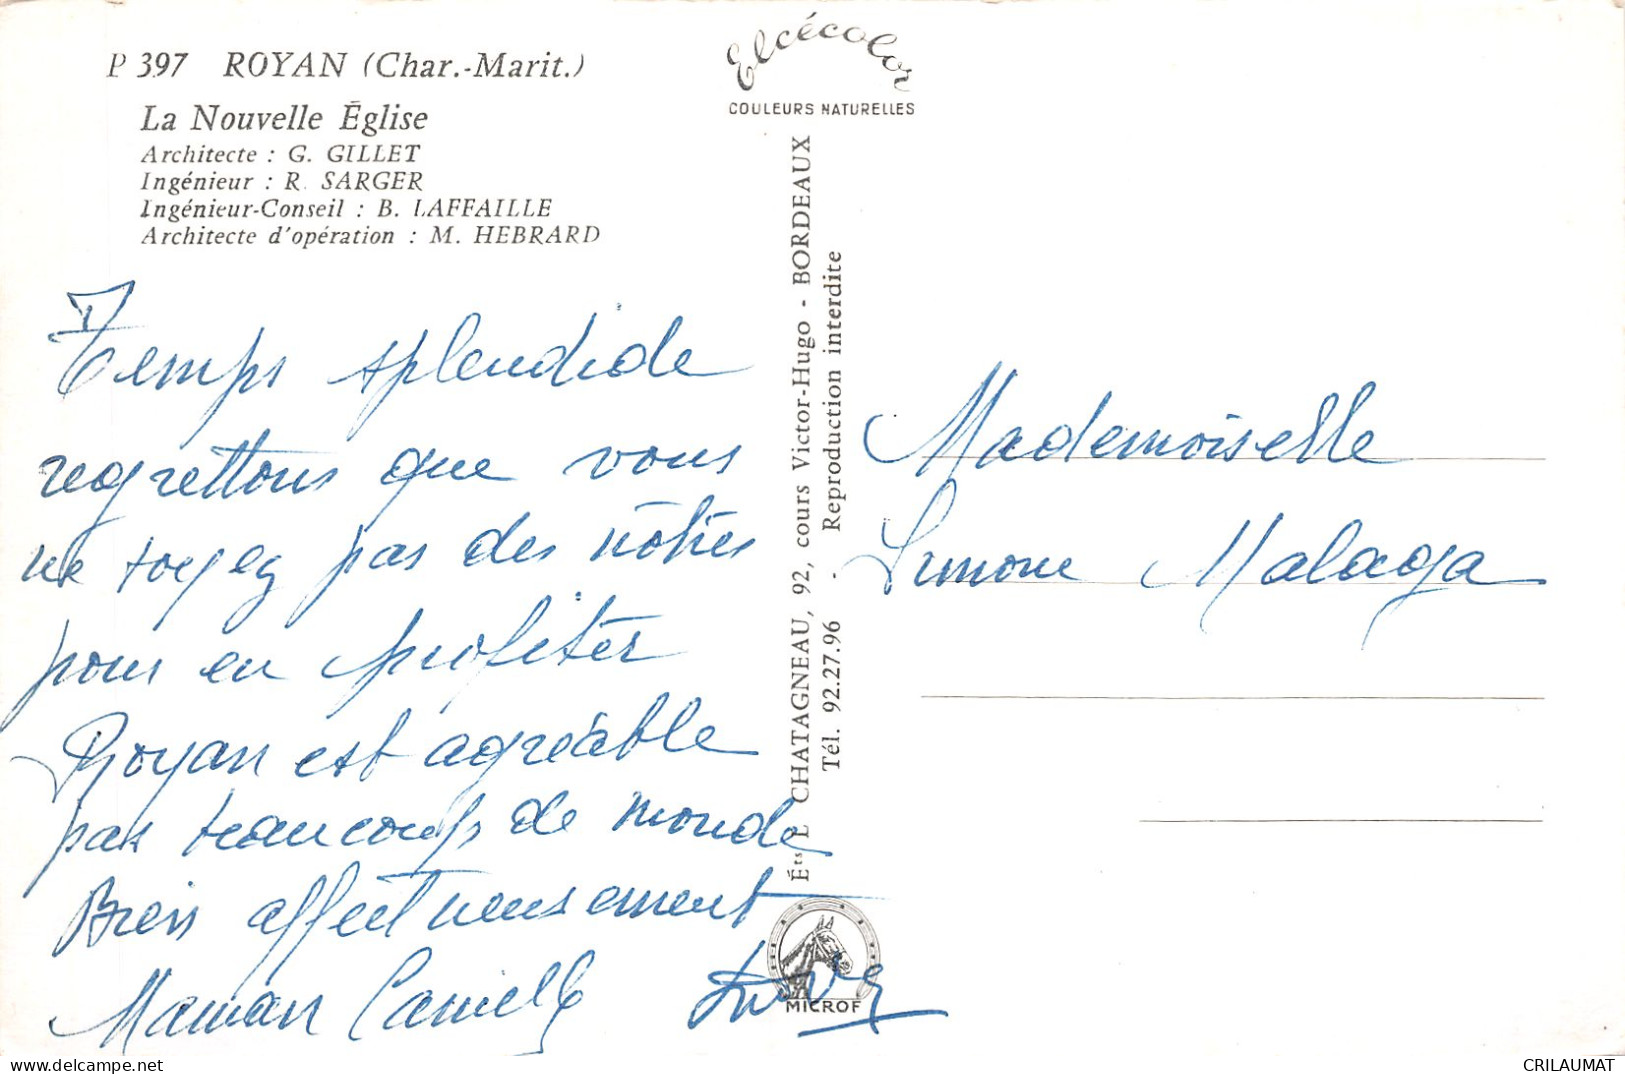 P 397 ROYAN (Char.-Marit.)
La Nouvelle Église
Architecte : G. GILLET
Ingénieur : R. SARGER
Ingénieur-Conseil : B. LAFFAILLE
Architecte d'opération : M. HEBRARD
Temps splendide
regrettons que vous
ne soyez pas des nôtres
pour en profiter
Royan est agréable
pas beaucoup de monde
Bien affectueusement
Maman Camille
Elcécolor
COULEURS NATURELLES
Éts E CHATAGNEAU, 92, cours Victor-Hugo - BORDEAUX
Tél. 92.27.96 - Reproduction interdite
MICROF
Mademoiselle
Simone Malaga
CRILAUMAT